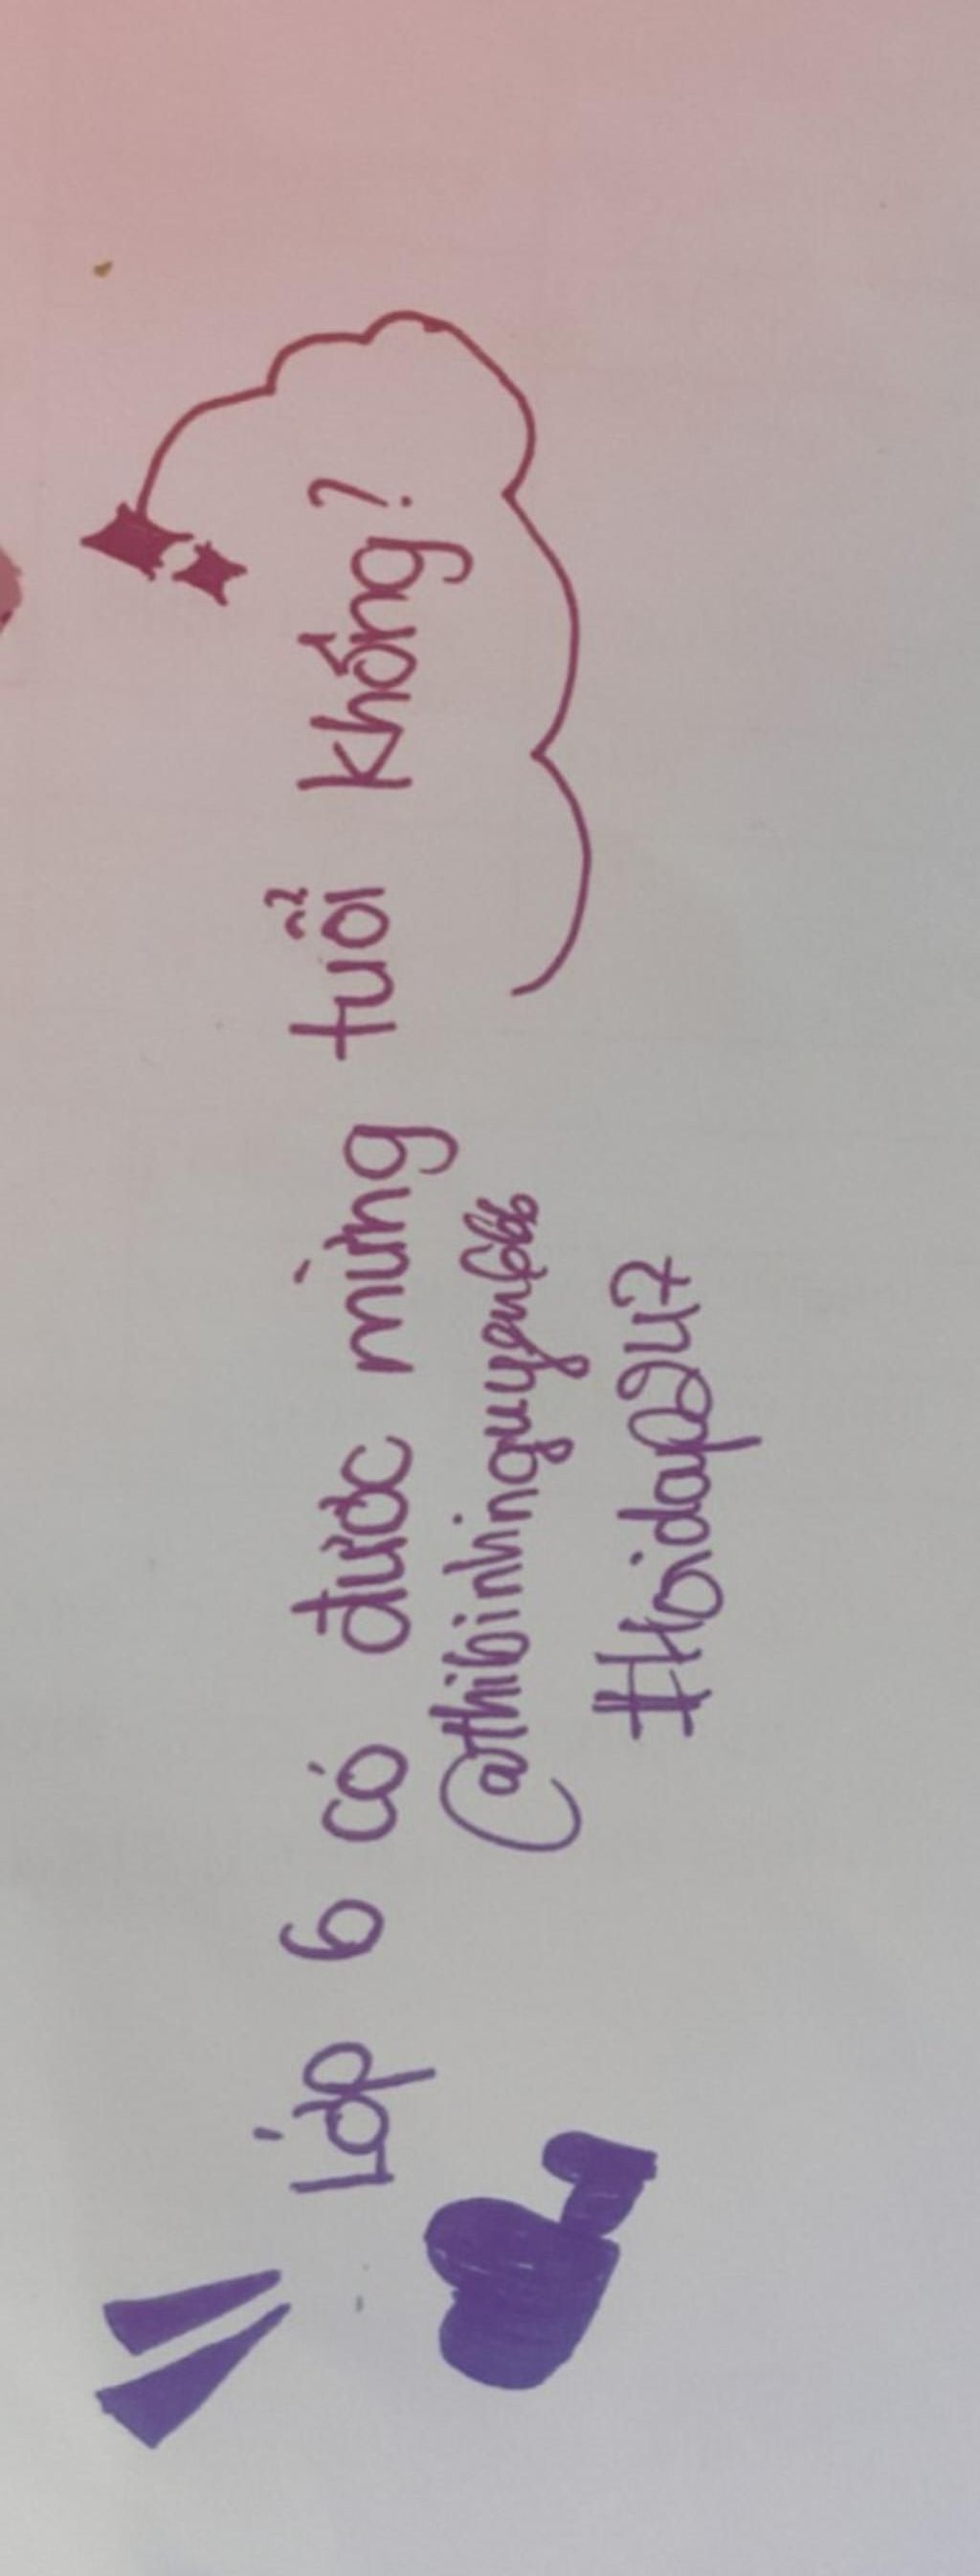 Lớp 6 có được mừng tuổi không?
@thibinhnguyen6886
#Hoidap247